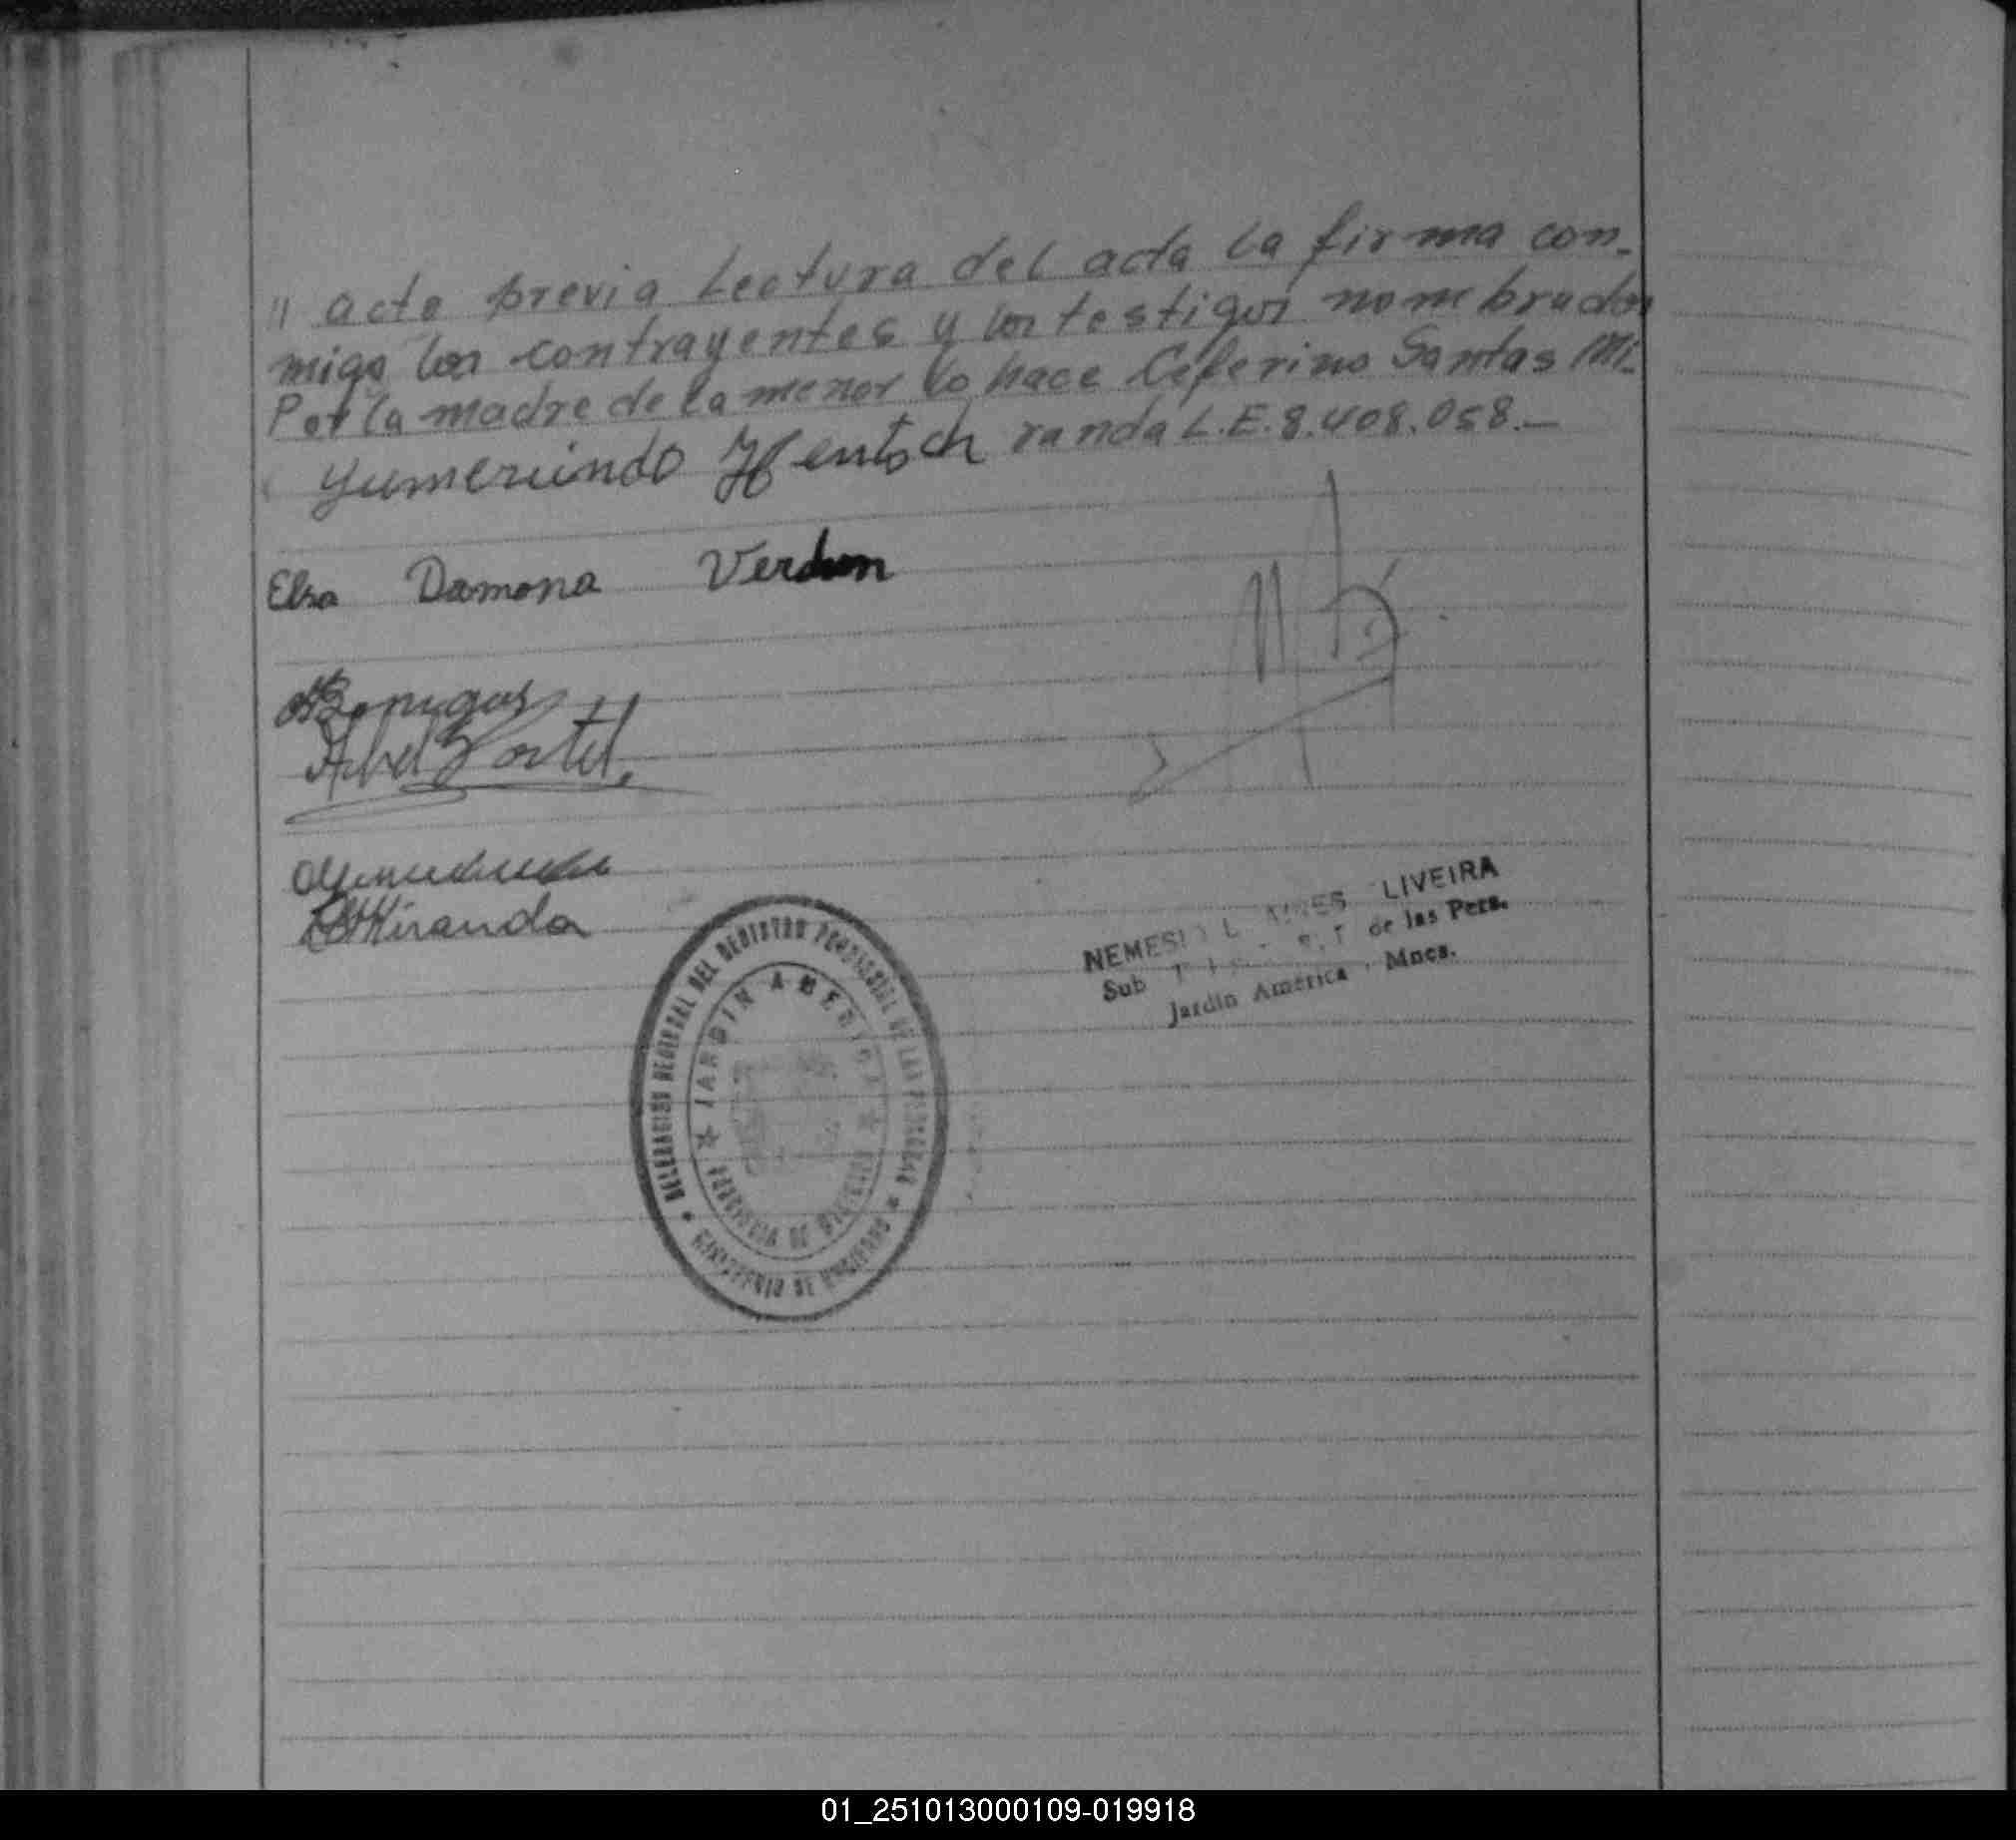 " acto previa Lectura del acta la firma con-
migo los contrayentes y los testigos nombrados
Por la madre de la menor lo hace Ceferino Santas Mi-
randa L.E. 8.408.058.—
Yumerindo Hentsch
Elsa Damona Verdun
Abel
Miranda
NEMESIO L. LIVEIRA
Sub de las Pers.
Jardín América Mnes.
DELEGACION REGIONAL DEL REGISTRO PROVINCIAL DE LAS PERSONAS
JARDIN AMERICA
PROVINCIA DE MISIONES
MINISTERIO DE GOBIERNO
01_251013000109-019918